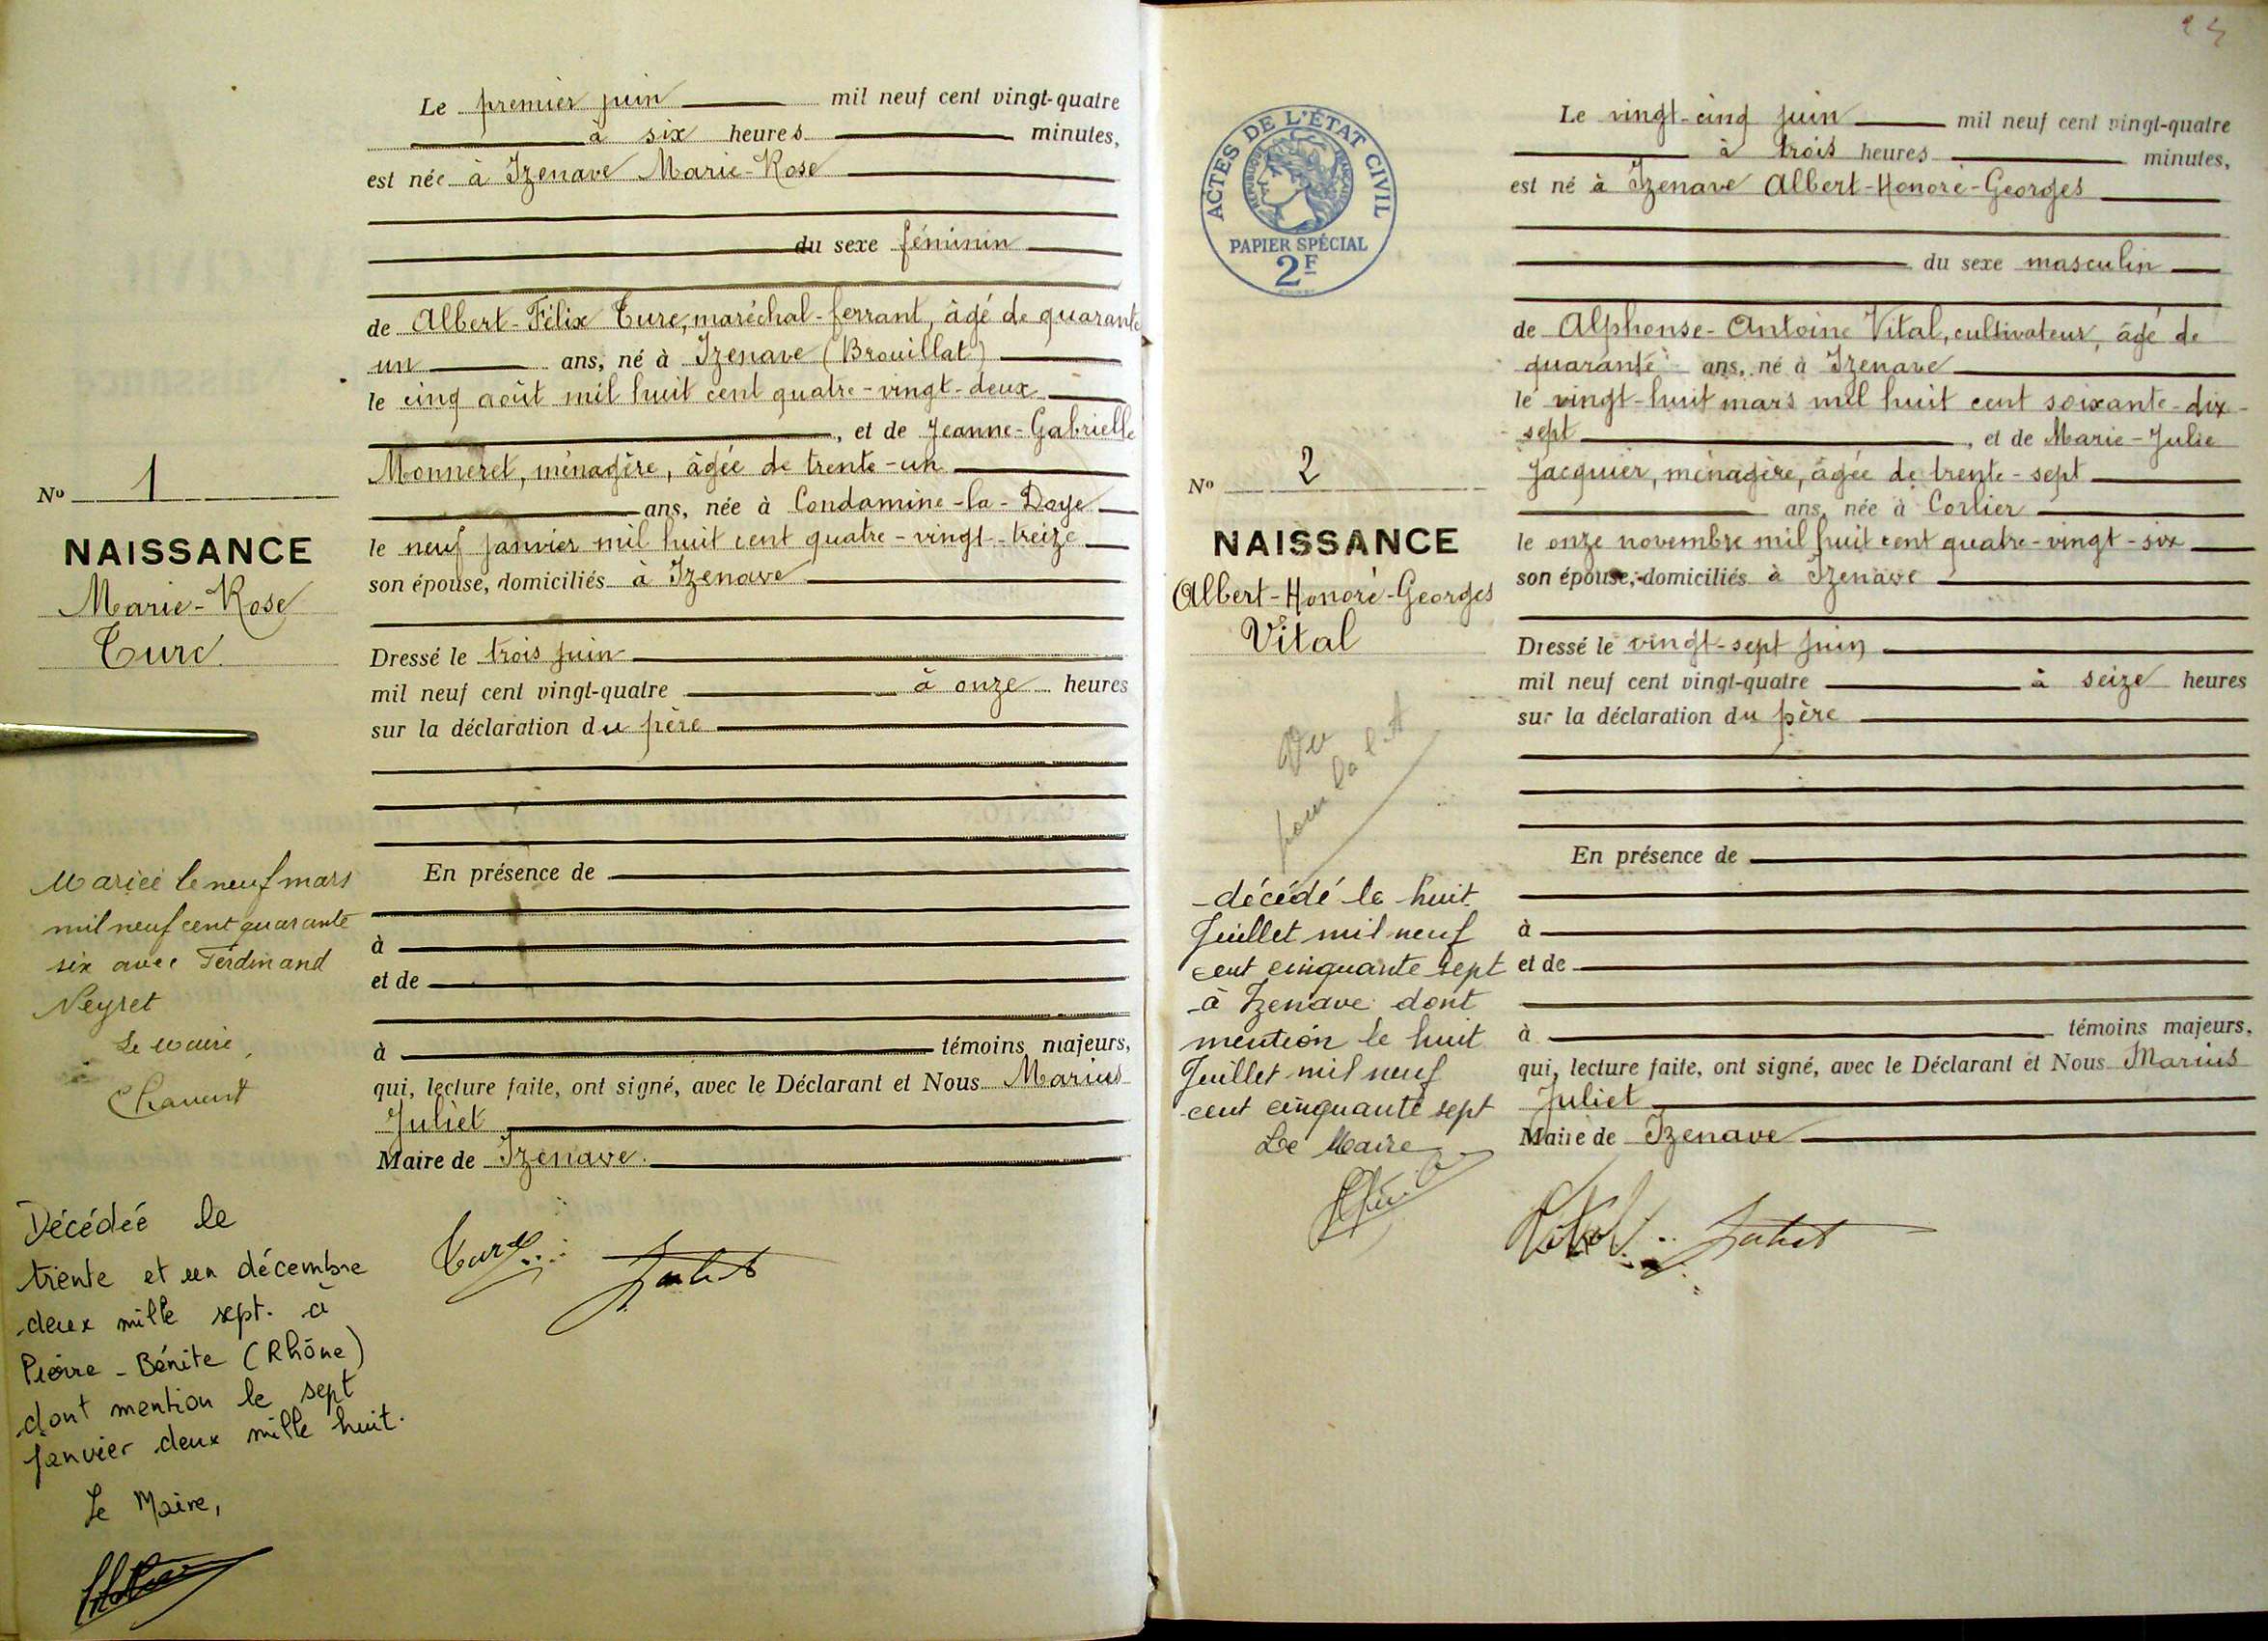 Le premier juin mil neuf cent vingt-quatre
à six heures minutes,
est née à Izenave Marie-Rose
du sexe féminin
de Albert-Félix Turc, maréchal-ferrant, âgé de quarante
un ans, né à Izenave (Brouillat)
le cinq août mil huit cent quatre-vingt-deux
, et de Jeanne-Gabrielle
Monneret, ménagère, âgée de trente-un
ans, née à Condamine-la-Doye
le neuf janvier mil huit cent quatre-vingt-treize
son épouse, domiciliés à Izenave
Dressé le trois juin
mil neuf cent vingt-quatre à onze heures
sur la déclaration du père
En présence de
à
et de
à témoins majeurs,
qui, lecture faite, ont signé, avec le Déclarant et Nous Marius
Juliet
Maire de Izenave.
Turc Juliet
No 1
NAISSANCE
Marie-Rose
Turc
Mariée le neuf mars
mil neuf cent quarante
six avec Ferdinand
Neyret
Le maire,
Décédée le
trente et un décembre
deux mille sept. à
Pierre-Bénite (Rhône)
dont mention le sept
Janvier deux mille huit.
Le Maire,
ACTES DE L'ÉTAT CIVIL
RÉPUBLIQUE FRANÇAISE
PAPIER SPÉCIAL
2F
Le vingt-cinq juin mil neuf cent vingt-quatre
à trois heures minutes,
est né à Izenave Albert-Honoré-Georges
du sexe masculin
de Alphonse-Antoine Vital, cultivateur, âgé de
quarante ans, né à Izenave
le vingt-huit mars mil huit cent soixante-dix-
sept , et de Marie-Julie
Jacquier, ménagère, âgée de trente-sept
ans, née à Corlier
le onze novembre mil huit cent quatre-vingt-six
son épouse, domiciliés à Izenave
Dressé le vingt-sept juin
mil neuf cent vingt-quatre à seize heures
sur la déclaration du père
En présence de
à
et de
à témoins majeurs,
qui, lecture faite, ont signé, avec le Déclarant et Nous Marius
Juliet
Maire de Izenave
Vital Juliet
No 2
NAISSANCE
Albert-Honoré-Georges
Vital
Vu
pour la
décédé le huit
Juillet mil neuf
cent cinquante sept
à Izenave dont
mention le huit
Juillet mil neuf
cent cinquante sept
Le Maire